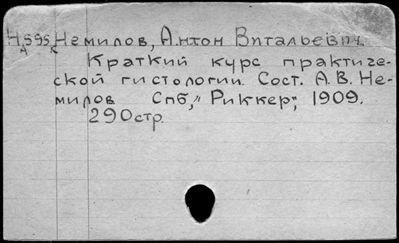 Немилов, Антон Витальевич.
Краткий курс практиче-
ской гистологии. Сост. А.В. Не-
милов Спб, "Риккер", 1909.
290 стр.